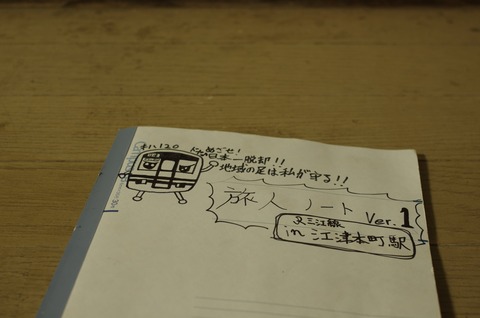 キハ120
めざせ!
日本一脱却!!
地域の足は私が守る!!
旅人ノート Ver.1
JR三江線
in 江津本町駅